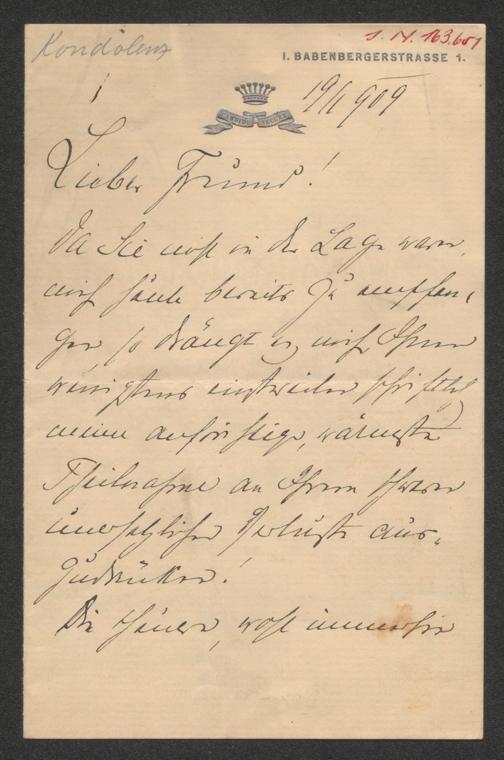 Kondolenz
J. N. 163.651
I. BABENBERGERSTRASSE 1.
19/I 909
Lieber Freund!
Da Sie nicht in der Lage waren,
mich heute bereits zu empfan-
gen so drängt es mich Ihnen
wenigstens einstweilen schriftlich
meine aufrichtige, wärmste
Theilnahme an Ihrem schweren
unersetzlichen Verluste aus-
zudrücken!
Die theuere, wohl immerhin